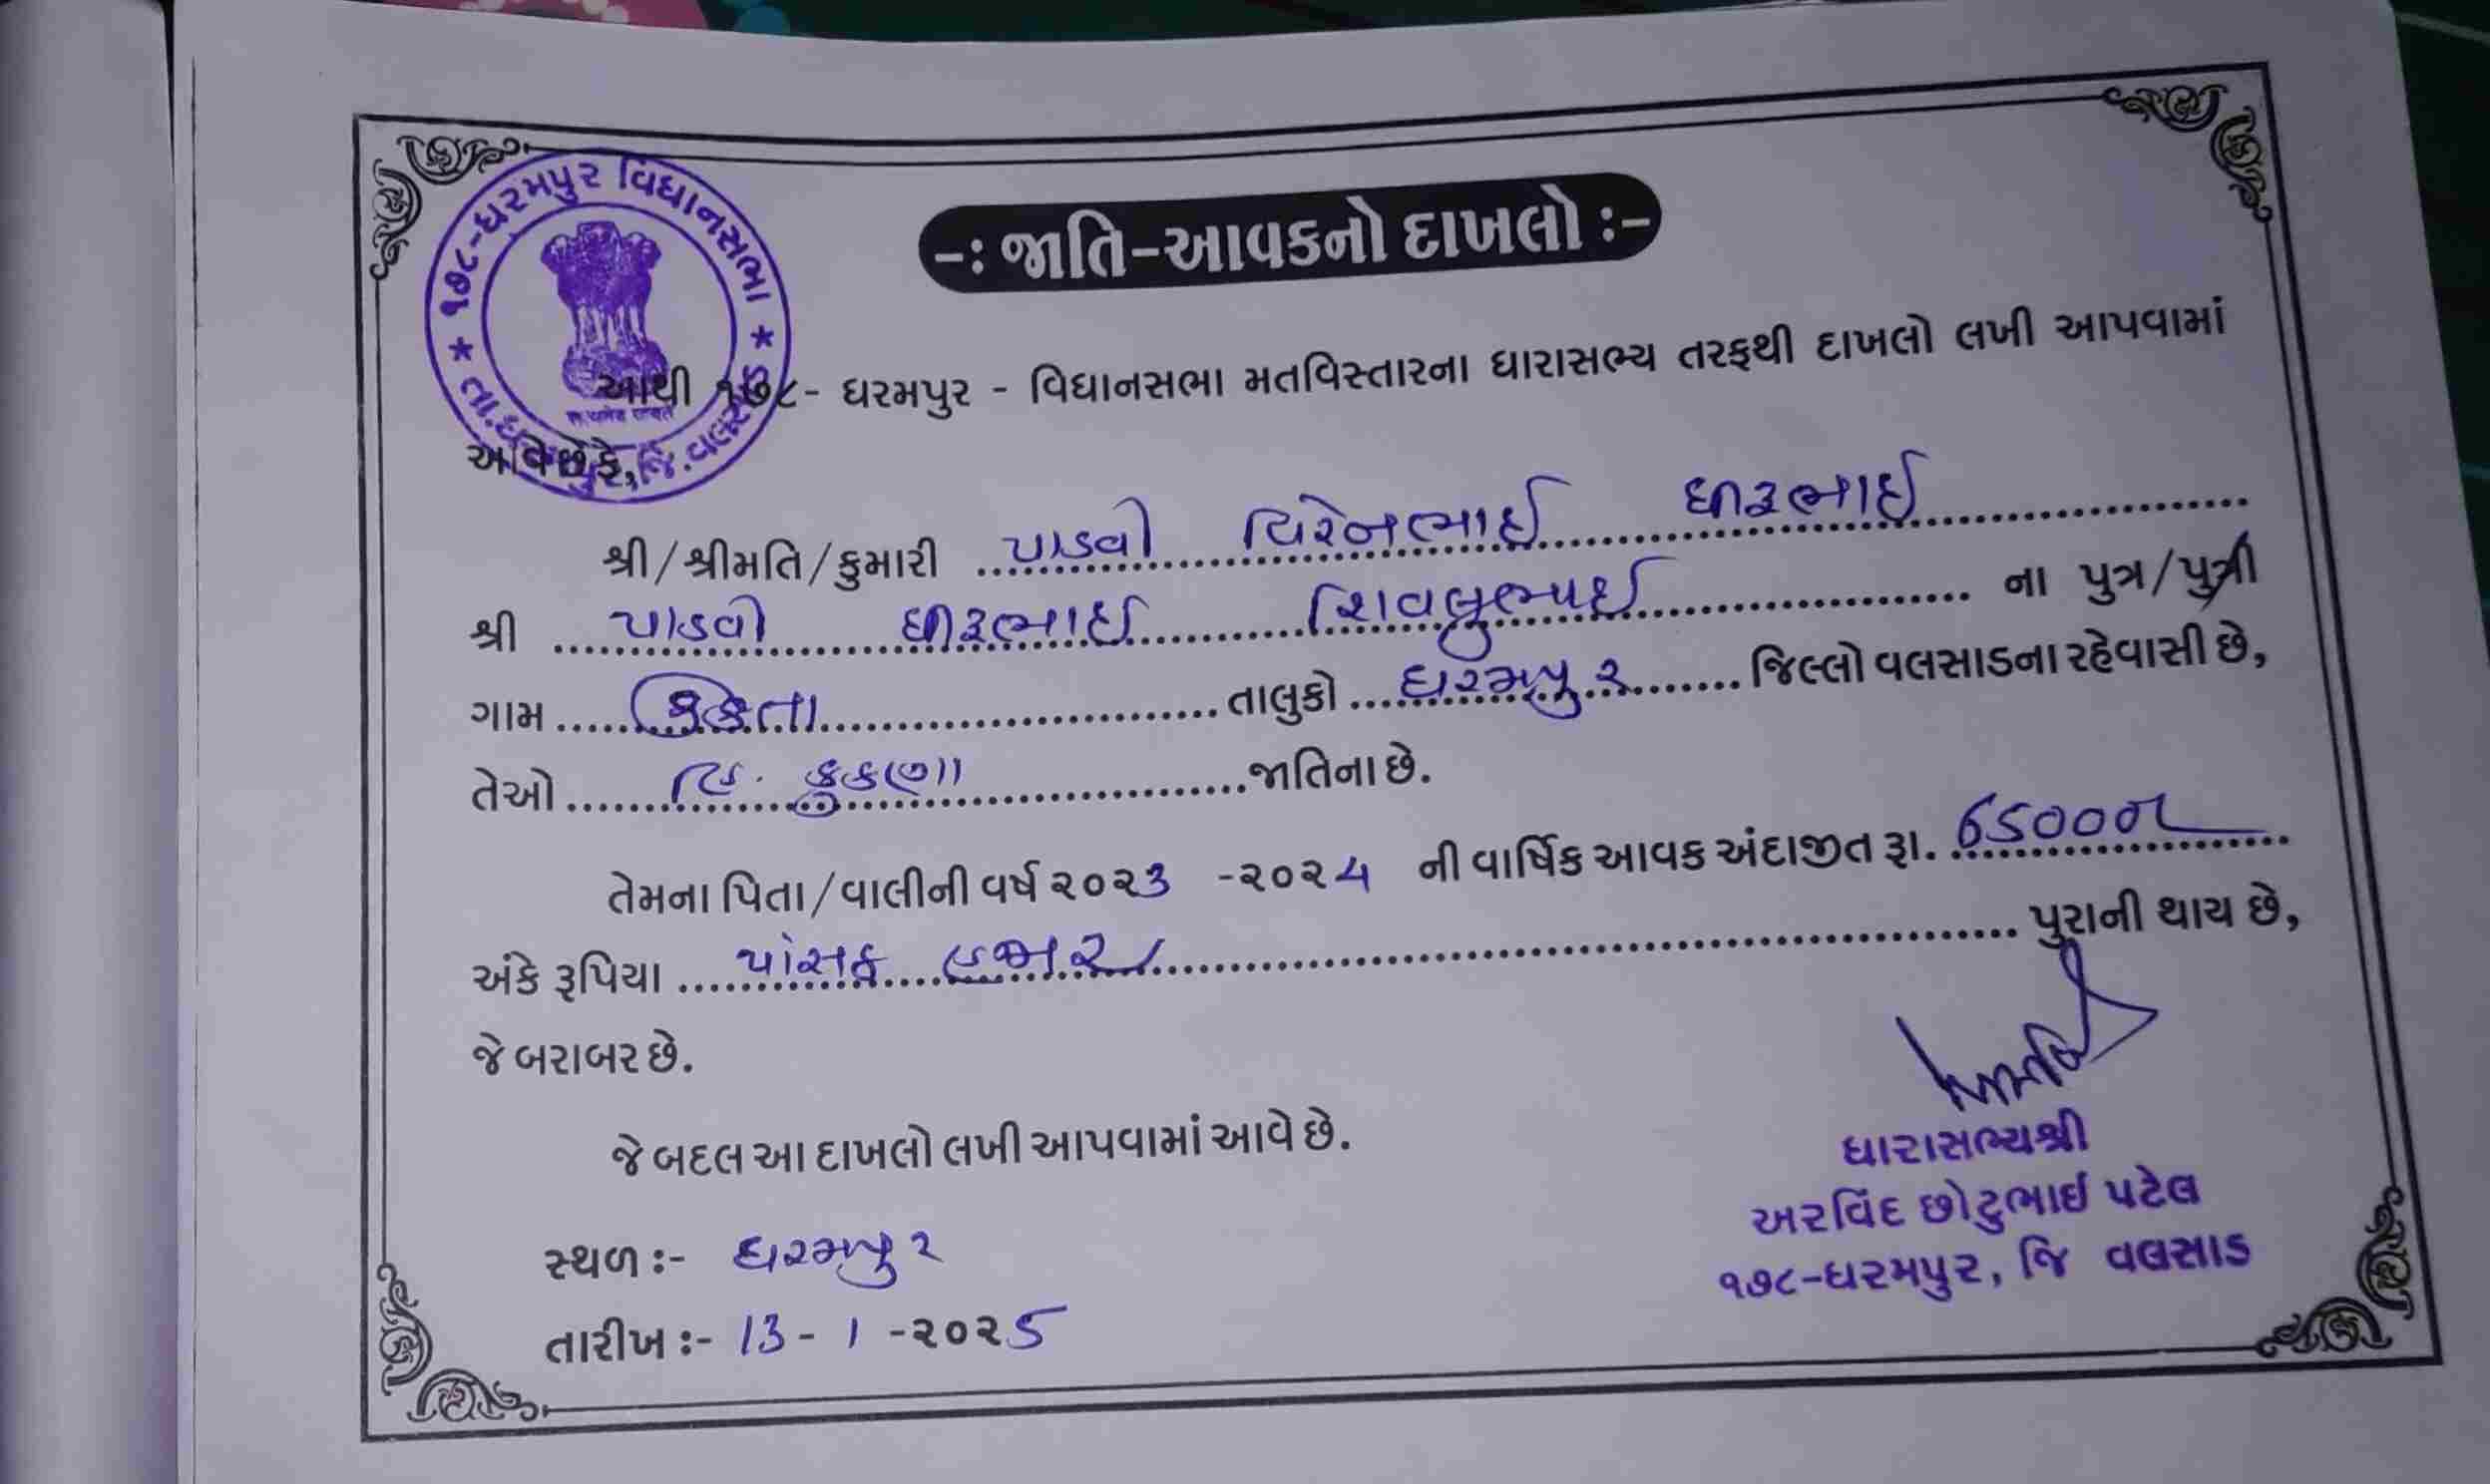 ૧૭૮-ધરમપુર વિધાનસભા
તા.ધરમપુર, જિ.વલસાડ
-: જાતિ-આવકનો દાખલો :-
આથી ૧૭૮- ધરમપુર - વિધાનસભા મતવિસ્તારના ધારાસભ્ય તરફથી દાખલો લખી આપવામાં
આવે છે કે,
શ્રી/શ્રીમતિ/કુમારી પાડવી વિરેનભાઈ ધીરૂભાઈ
શ્રી પાડવી ધીરૂભાઈ શિવલુભાઈ ના પુત્ર/પુત્રી
ગામ તાલુકો ધરમપુર જિલ્લો વલસાડના રહેવાસી છે,
તેઓ હિ. કુકણા જાતિના છે.
તેમના પિતા/વાલીની વર્ષ ૨૦૨૩ -૨૦૨૪ ની વાર્ષિક આવક અંદાજીત રૂા.
અંકે રૂપિયા હજાર પુરાની થાય છે,
જે બરાબર છે.
જે બદલ આ દાખલો લખી આપવામાં આવે છે.
ધારાસભ્યશ્રી
અરવિંદ છોટુભાઈ પટેલ
૧૭૮-ધરમપુર, જિ વલસાડ
સ્થળ :- ધરમપુર
તારીખ :- 13 - 1 -૨૦૨5